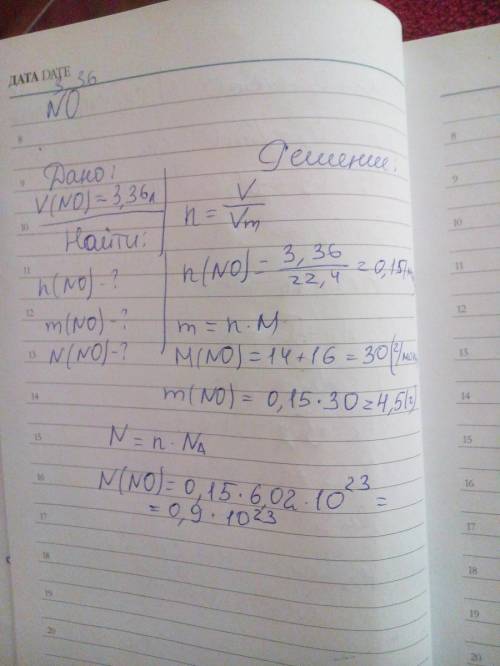 ДАТА DATE
3 36
NO
Дано:
Решение:
V(NO) = 3,36л
n = V/Vm
Найти:
n(NO) = 3,36/22,4 = 0,15
n(NO) - ?
m(NO) - ?
m = n · M
N(NO) - ?
M(NO) = 14 + 16 = 30 (г/мол
m(NO) = 0,15 · 30 = 4,5 (г)
N = n · NA
N(NO) = 0,15 · 6,02 · 10^23 =
= 0,9 · 10^23
8
9
10
11
12
13
14
15
16
17
18
19
20
8
9
10
11
12
13
14
15
16
17
18
19
20